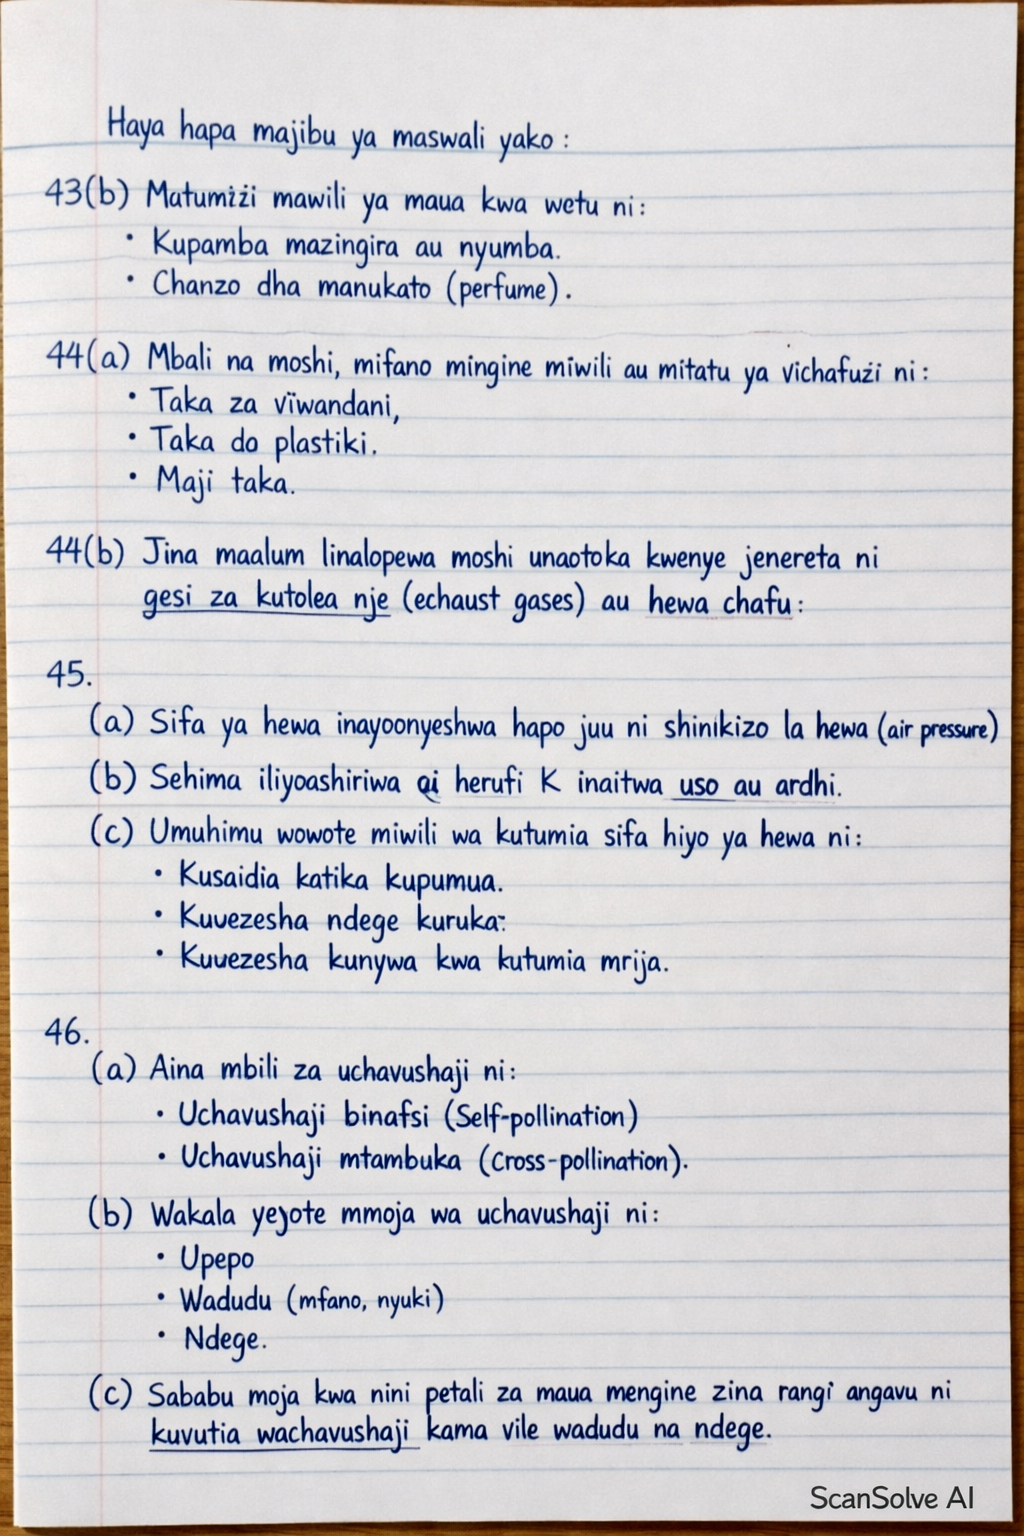 Haya hapa majibu ya maswali yako:
43(b) Matumizi mawili ya maua kwa wetu ni:
• Kupamba mazingira au nyumba.
• Chanzo dha manukato (perfume).
44(a) Mbali na moshi, mifano mingine miwili au mitatu ya vichafuzi ni:
• Taka za vïwandani,
• Taka do plastiki.
• Maji taka.
44(b) Jina maalum linalopewa moshi unaotoka kwenye jenereta ni
gesi za kutolea nje (echaust gases) au hewa chafu:
45.
(a) Sifa ya hewa inayoonyeshwa hapo juu ni shinikizo la hewa (air pressure)
(b) Sehima iliyoashiriwa herufi K inaitwa uso au ardhi.
(c) Umuhimu wowote miwili wa kutumia sifa hiyo ya hewa ni:
• Kusaidia katika kupumua.
• Kuuezesha ndege kuruka:
• Kuuezesha kunywa kwa kutumia mrija.
46.
(a) Aina mbili za uchavushaji ni:
• Uchavushaji binafsi (Self-pollination)
• Uchavushaji mtambuka (Cross-pollination).
(b) Wakala yejote mmoja wa uchavushaji ni:
• Upepo
• Wadudu (mfano, nyuki)
• Ndege.
(c) Sababu moja kwa nini petali za maua mengine zina rangi angavu ni
kuvutia wachavushaji kama vile wadudu na ndege.
ScanSolve AI